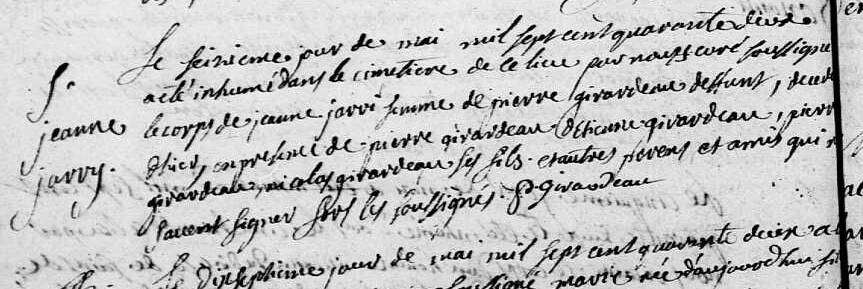 S.
jeanne
jarry.
Le seisieme jour de mai mil sept cent quarante deux
a eté inhumé dans le cimetiere de ce lieu par nous curé soussigné
le corps de jeanne jarri femme de pierre girardeau deffunt, decedé
d'hier, en presence de pierre girardeau d'Etienne girardeau, pierre
girardeau, nicolas girardeau ses fils et autres parens et amis qui n
sçavent signer fors les soussignés. P Girardeau
Le dixseptieme jour de mai mil sept cent quarante deux a
soussigné marie née d'aujourdhui